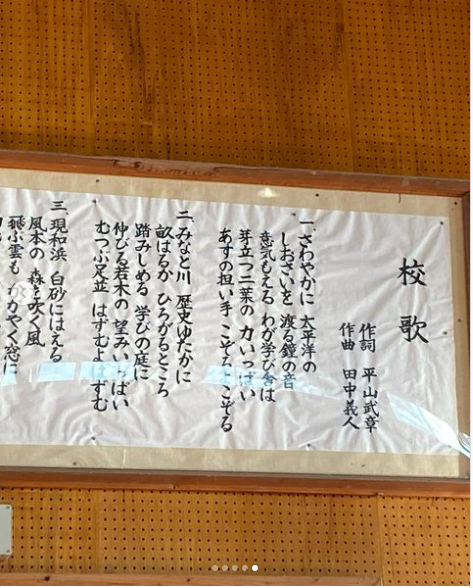 校歌
作詞 平山武章
作曲 田中義人
一、さわやかに 太平洋の
しおさいを 渡る鐘の音
意気もえる わが学び舎は
芽立つ二葉の 力いっぱい
あすの担い手 こぞるよこぞる
二、みなと川 歴史ゆたかに
畝はるか ひろがるところ
踏みしめる 学びの庭に
伸びる若木の 望みいっぱい
むつぶ足並 はずむよはずむ
三、現和浜 白砂にはえる
風本の 森を吹く風
飛ぶ雲も かがやく窓に